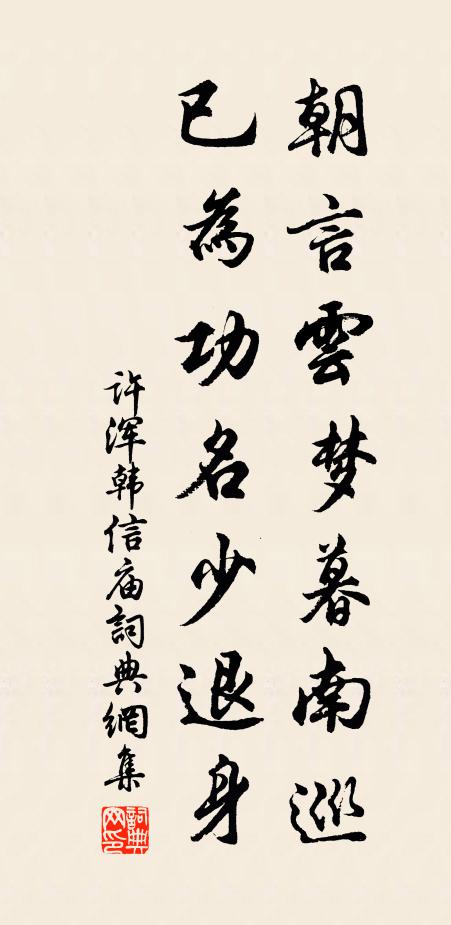 朝言雲梦暮南巡
已為功名少退身
许浑韩信庙詞典網集
詞典網印